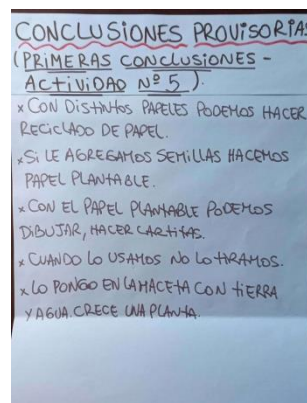 CONCLUSIONES PROVISORIAS
(PRIMERAS CONCLUSIONES -
ACTIVIDAD Nº 5).
x CON DISTINTOS PAPELES PODEMOS HACER
RECICLADO DE PAPEL.
x SI LE AGREGAMOS SEMILLAS HACEMOS
PAPEL PLANTABLE.
x CON EL PAPEL PLANTABLE PODEMOS
DIBUJAR, HACER CARTITAS.
x CUANDO LO USAMOS NO LO TIRAMOS.
x LO PONGO EN LA MACETA CON TIERRA
Y AGUA. CRECE UNA PLANTA.